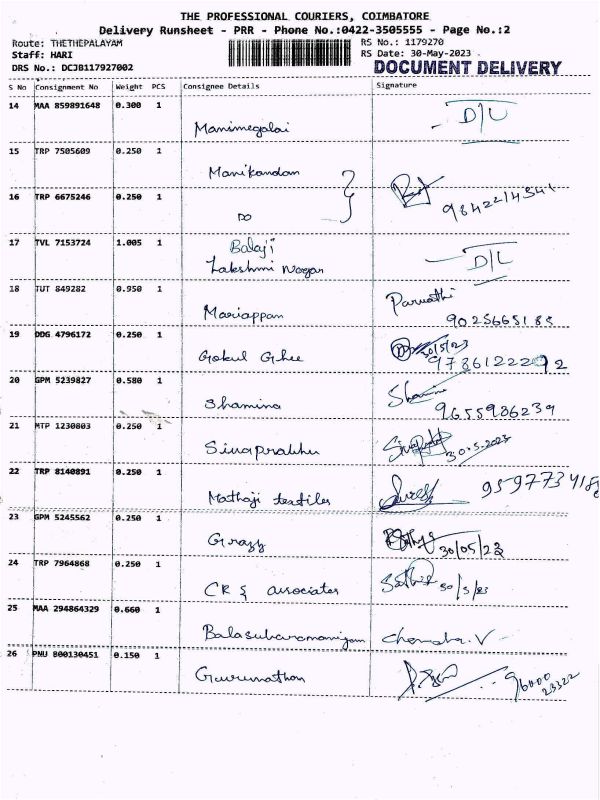 THE PROFESSIONAL COURIERS, COIMBATORE
Delivery Runsheet - PRR - Phone No.:0422-3505555 - Page No.:2
Route: THETHEPALAYAM
RS No.: 1179270
Staff: HARI
RS Date: 30-May-2023
DRS No.: DCJB117927002
DOCUMENT DELIVERY
S No Consignment No Weight PCS Consignee Details Signature
14 MAA 859891648 0.300 1
Manimegalai D/L
15 TRP 7505609 0.250 1
Manikandan
16 TRP 6675246 0.250 1
DO 9842214341
17 TVL 7153724 1.005 1
Balaji
Lakshmi Nagar D/L
18 TUT 849282 0.950 1
Mariappan Parvathi
90256651 83
19 DDG 4796172 0.250 1
Gokul Ghee 30/5/23
9786122292
20 GPM 5239827 0.580 1
Shamina Shamina
9655986239
21 MTP 1230803 0.250 1
Sivaprabhu 30.5.2023
22 TRP 8140891 0.250 1
Mathaji textiles Suresh 9597734188
23 GPM 5245562 0.250 1
30/05/23
24 TRP 7964868 0.250 1
CR & associates 30/5/23
25 MAA 294864329 0.660 1
Balasubaramaniyam Chandra.V
26 PNU 800130451 0.150 1
Gurunathan 96000
23322